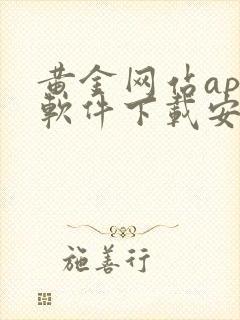 黄金网佔ap
軟件下載安
施善行